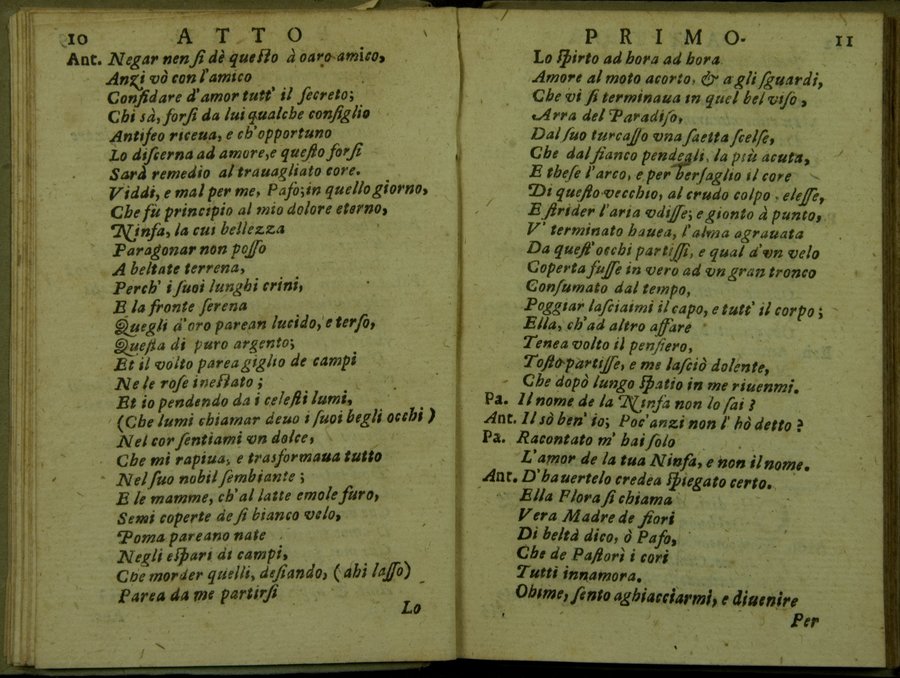 10 ATTO
Ant. Negar nen ſi dè queſto à oaro amico,
Anzi vò con l'amico
Confidare d'amor tutt' il ſecreto;
Chi sà, forſi da lui qualche conſiglio
Antifeo riceua, e ch'opportuno
Lo diſcerna ad amore, e queſto forſi
Sarà remedio al trauagliato core.
Viddi, e mal per me, Pafo; in quello giorno,
Che fù principio al mio dolore eterno,
Ninfa, la cui bellezza
Paragonar non poſſo
A beltate terrena,
Perch' i ſuoi lunghi crini,
E la fronte ſerena
Quegli d'oro parean lucido, e terſo,
Queſta di puro argento;
Et il volto parea giglio de campi
Ne le roſe ineſtato;
Et io pendendo da i celeſti lumi,
(Che lumi chiamar deuo i ſuoi begli occhi)
Nel cor ſentiami vn dolce,
Che mi rapiua, e trasformaua tutto
Nel ſuo nobil ſembiante;
E le mamme, ch'al latte emole furo,
Semi coperte de ſi bianco velo,
Poma pareano nate
Negli eſpari di campi,
Che morder quelli, deſiando, (ahi laſſo)
Parea da me partirſi
Lo
PRIMO. 11
Lo ſpirto ad hora ad hora
Amore al moto acorto, & a gli ſguardi,
Che vi ſi terminaua in quel bel viſo,
Arra del Paradiſo,
Dal ſuo turcaſſo vna ſaetta ſcelſe,
Che dal fianco pendegli, la più acuta,
E theſe l'arco, e per berſaglio il core
Di queſto vecchio, al crudo colpo, eleſſe,
E ſtrider l'aria vdiſſe; e gionto à punto,
V' terminato hauea, l'alma agrauata
Da queſt' occhi partiſſi, e qual d'vn velo
Coperta fuſſe in vero ad vn gran tronco
Conſumato dal tempo,
Poggiar laſciaimi il capo, e tutt' il corpo;
Ella, ch'ad altro affare
Tenea volto il penſiero,
Toſto partiſſe, e me laſciò dolente,
Che dopò lungo ſpatio in me riuenmi.
Pa. Il nome de la Ninfa non lo ſai?
Ant. Il sò ben' io; Poc'anzi non l' hò detto?
Pa. Racontato m' hai ſolo
L'amor de la tua Ninfa, e non il nome.
Ant. D'hauertelo credea ſpiegato certo.
Ella Flora ſi chiama
Vera Madre de fiori
Di beltà dico, ò Pafo,
Che de Paſtori i cori
Tutti innamora.
Ohime, ſento aghiacciarmi, e diuenire
Per